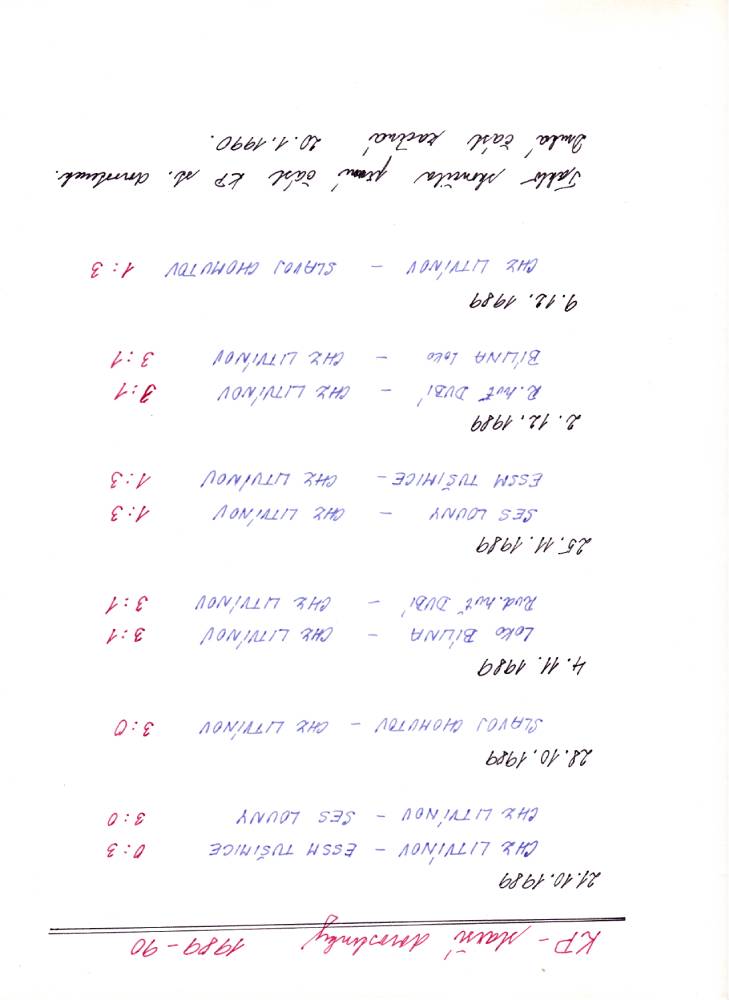 KP - starší dorostenky 1989-90
21.10.1989
CHZ LITVÍNOV - ESSM TUŠIMICE 0:3
CHZ LITVÍNOV - SES LOUNY 3:0
28.10.1989
SLAVOJ CHOMUTOV - CHZ LITVÍNOV 3:0
4.11.1989
Loko BÍLINA - CHZ LITVÍNOV 3:1
Rud.huť DUBÍ - CHZ LITVÍNOV 3:1
25.11.1989
SES LOUNY - CHZ LITVÍNOV 1:3
ESSM TUŠIMICE - CHZ LITVÍNOV 1:3
2.12.1989
R.huť DUBÍ - CHZ LITVÍNOV 3:1
BÍLINA Loko - CHZ LITVÍNOV 3:1
9.12.1989
CHZ LITVÍNOV - SLAVOJ CHOMUTOV 1:3
Takto skončila první část KP st. dorostenek.
Druhá část začíná 20.1.1990.